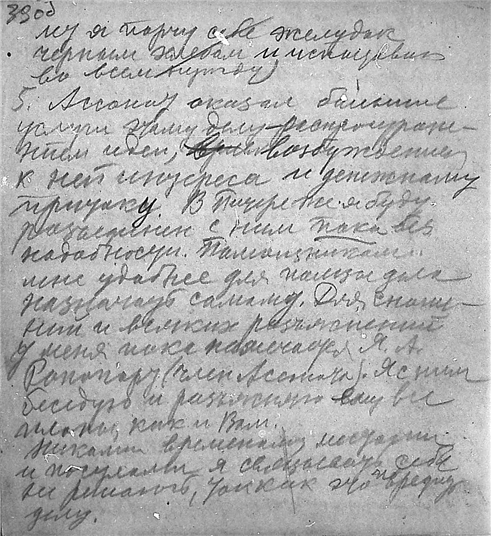 33об
му я порчу себе желудок
черным хлебом и испытываю
во всем нужду)
5. Ассонач оказал большие
услуги этому делу распростране-
нием идеи, возбуждением
к ней интереса и денежному
притоку. В Питере же я буду
разъединен с ним пока без
надобности. Помощников
мне удобнее для пользы дела
назначать самому. Для сноше-
ний и всяких разъяснений
у меня пока назначается Я. А.
Рапопорт (член Ассонача). Я с ним
беседую и разъясняю ему все
планы, как и Вам.
Никакими временными
и посулами я связывать себя
не решаюсь, так как это вредит
делу.